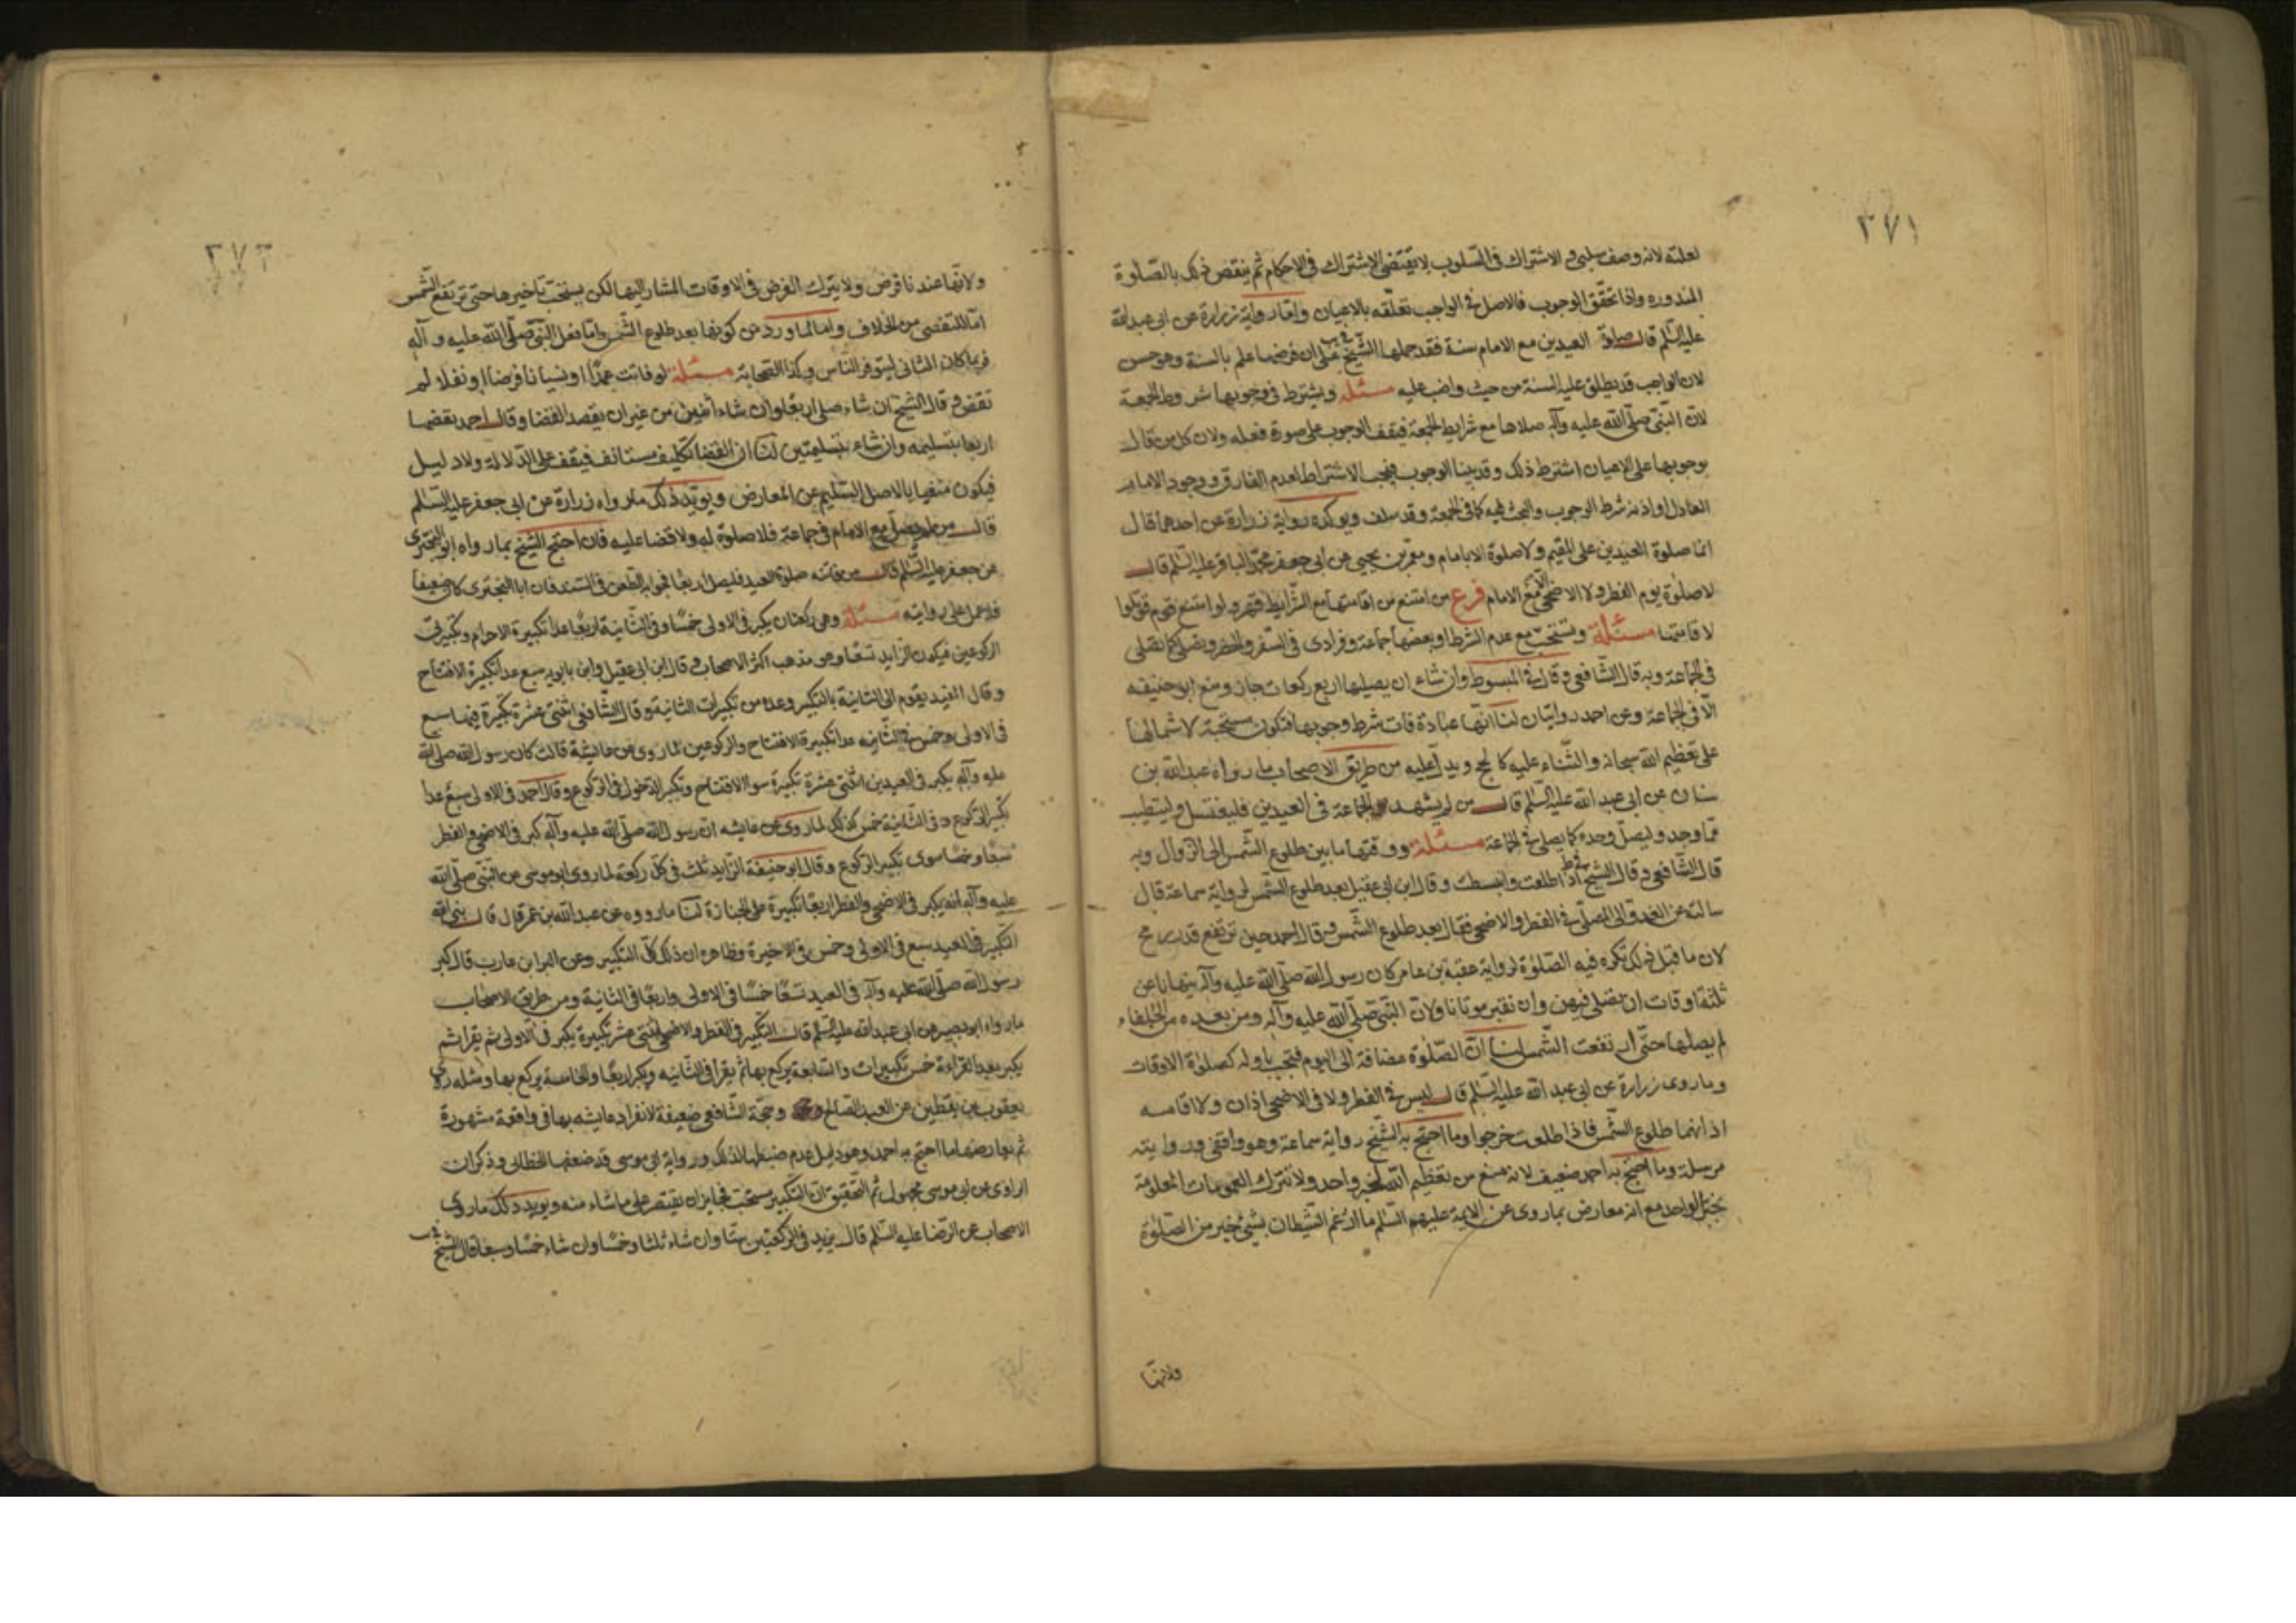 ٣٧١
لعلته لانه وصف سلبى و الاشتراك فى السلوب لا يقتضى الاشتراك فى الاحكام ثم ينقض ذلك بالصلوة
المنذوره واذا تحقق الوجوب فالاصل فى الواجب تعلقه بالاعيان واما رواية زرارة عن ابى عبد الله
عليه السلم قال صلوة العيدين مع الامام سنة فقد حملها الشيخ فى يب على ان فرضها علم بالسنة وهو حسن
لان الواجب قد يطلق عليه السنة من حيث واضب عليه مسئلة ويشترط فى وجوبها شروط الجمعة
لان النبى صلى الله عليه وآله صلاها مع شرايط الجمعة فيقف الوجوب على صورة فعله ولان كل من قال
بوجوبها على الاعيان اشترط ذلك وقد بينا الوجوب فيجب الاشتراط لعدم الفارق ووجود الامام
العادل او اذنه شرط الوجوب والبحث فيه كما فى الجمعة وقد سلف ويوكده رواية زرارة عن احدهما قال
انما صلوة العيدين على المقيم ولا صلوة الا بامام ومعمر بن يحيى عن ابى جعفر محمد الباقر عليه السلم قال
لا صلوة يوم الفطر ولا الاضحى الا مع الامام فرع من امتنع من اقامتها مع الشرايط قهر ولو امتنع قوم قوتلوا
لاقامتها مسئلة وتستحب مع عدم الشرط او بعضها جماعة وفرادى فى السفر والحضر وتصلى كما تصلى
فى الجماعة وبه قال الشافعى وقال فى المبسوط وان شاء ان يصليها اربع ركعات جاز ومنع ابو حنيفه
الا فى الجماعة وعن احمد روايتان لنا انها عبادة فات شرط وجوبها فتكون مستحبة لاشتمالها
على تعظيم الله سبحانه والثناء عليه كالحج ويدل عليه من طريق الاصحاب ما رواه عبد الله بن
سنان عن ابى عبد الله عليه السلم قال من لم يشهد الجماعة فى العيدين فليغتسل وليتطيب
بما وجد وليصل وحده كما يصلى فى الجماعة مسئلة ووقتها ما بين طلوع الشمس الى الزوال وبه
قال الشافعى وقال الشيخ فى ط اذا طلعت وانبسطت وقال ابن ابى عقيل بعد طلوع الشمس لرواية سماعة قال
سالته عن الغدو الى المصلى فى الفطر والاضحى فقال بعد طلوع الشمس وقال احمد حين ترتفع قدر رمح
لان ما قبل ذلك تكره فيه الصلوة لرواية عقبة بن عامر كان رسول الله صلى الله عليه وآله ينهانا عن
ثلثة اوقات ان نصلى فيهن وان نقبر موتانا ولان النبى صلى الله عليه وآله ومن بعده من الخلفاء
لم يصلها حتى ارتفعت الشمس لنا ان الصلوة مضافة الى اليوم فتجب باوله كصلوة الاوقات
وما روى زرارة عن ابى عبد الله عليه السلم قال ليس فى الفطر ولا فى الاضحى اذان ولا اقامه
اذانهما طلوع الشمس فاذا طلعت خرجوا وما احتج به الشيخ رواية سماعة وهو واقفى وروايته
مرسلة وما احتج به احمد ضعيف لانه منع من تعظيم الله بخبر واحد ولا نترك العمومات المعلومة
بخبر الواحد مع انه معارض بما روى عن الايمة عليهم السلم ما ارغم الشيطان بشئ خير من الصلوة
ولانها
٣٧٢
ولانها عندنا فرض ولا يترك الفرض فى الاوقات المشار اليها لكن يستحب تاخيرها حتى ترتفع الشمس
اما للتفصى من الخلاف واما لما ورد من كونها بعد طلوع الشمس واما فعل النبى صلى الله عليه وآله
فربما كان الثانى ليتوفر الناس وكذا الصحابة مسئلة لو فاتت عمدا او نسيانا فرضا او نفلا لم
تقض وقال الشيخ ان شاء صلى اربعا وان شاء اثنين من غير ان يقصد القضا وقال احمد يقضها
اربعا بتسليمه وان شاء بتسليمتين لنا ان القضا تكليف مستانف فيقف على الدلالة ولا دليل
فيكون منفيا بالاصل السليم عن المعارض ويويد ذلك ما رواه زرارة عن ابى جعفر عليه السلم
قال من لم يصل مع الامام فى جماعة فلا صلوة له ولا قضا عليه فان احتج الشيخ بما رواه ابو البخترى
عن جعفر عليه السلم قال من فاتته صلوة العيد فليصل اربعا فجوابه الطعن فى السند فان ابا البخترى كان ضعيفا
فلا عمل على روايته مسئلة وهى ركعتان يكبر فى الاولى خمسا وفى الثانية اربعا عدا تكبيرة الاحرام وتكبيرتى
الركوعين فيكون الزايد تسعا وهو مذهب اكثر الاصحاب وقال ابن ابى عقيل وابن بابويه سبع عدا تكبيرة الافتتاح
وقال المفيد يقوم الى الثانية بالتكبير وعده من تكبيرات الثانية وقال الشافعى اثنتى عشرة تكبيرة فيها سبع
فى الاولى وخمس فى الثانيه عدا تكبيرة الافتتاح والركوعين لما روى عن عايشة قالت كان رسول الله صلى الله
عليه وآله يكبر فى العيدين اثنتى عشرة تكبيرة سوا الافتتاح وتكبير الدخول فى الركوع وقال احمد فى الاولى سبع عدا
تكبير الركوع وفى الثانية خمس كذلك لما روى عن عايشه ان رسول الله صلى الله عليه وآله كبر فى الاضحى والفطر
سبعا وخمسا سوى تكبير الركوع وقال ابو حنيفة الزايد ثلث فى كل ركعة لما روى ابو موسى عن النبى صلى الله
عليه وآله انه يكبر فى الاضحى والفطر اربعا تكبيرة على الجنازة لنا ما رووه عن عبد الله بن عمر قال قال نبى الله
التكبير فى العيد سبع فى الاولى وخمس فى الاخيرة وظاهره ان ذلك كل التكبير وعن البرا بن عازب قال كبر
رسول الله صلى الله عليه وآله فى العيد تسعا خمسا فى الاولى واربعا فى الثانية ومن طريق الاصحاب
ما رواه ابو بصير عن ابى عبد الله عليه السلم قال التكبير فى الفطر والاضحى اثنتى عشر تكبيرة يكبر فى الاولى ثم يقرا ثم
يكبر بعد القراءة خمس تكبيرات والسابعة يركع بها ثم يقرا فى الثانيه ويكبر اربعا والخامسة يركع بها ومثله روى
يعقوب بن يقطين عن العبد الصالح وحجة الشافعى ضعيفة لانفراد عايشه بها فى واقعة مشهورة
ثم يعارضها ما احتج به احمد وهو دليل عدم ضبطها لذلك ورواية ابى موسى قد ضعفها الخطابى وذكر ان
الراوى عن ابى موسى مجهول ثم التحقيق ان التكبير مستحب فجايز ان يقتصر على ما شاء منه ويويد ذلك ما روى
الاصحاب عن الرضا عليه السلم قال يزيد فى الركعتين ستا وان شاء ثلثا وخمسا وان شاء خمسا وسبعا قال الشيخ فى يب